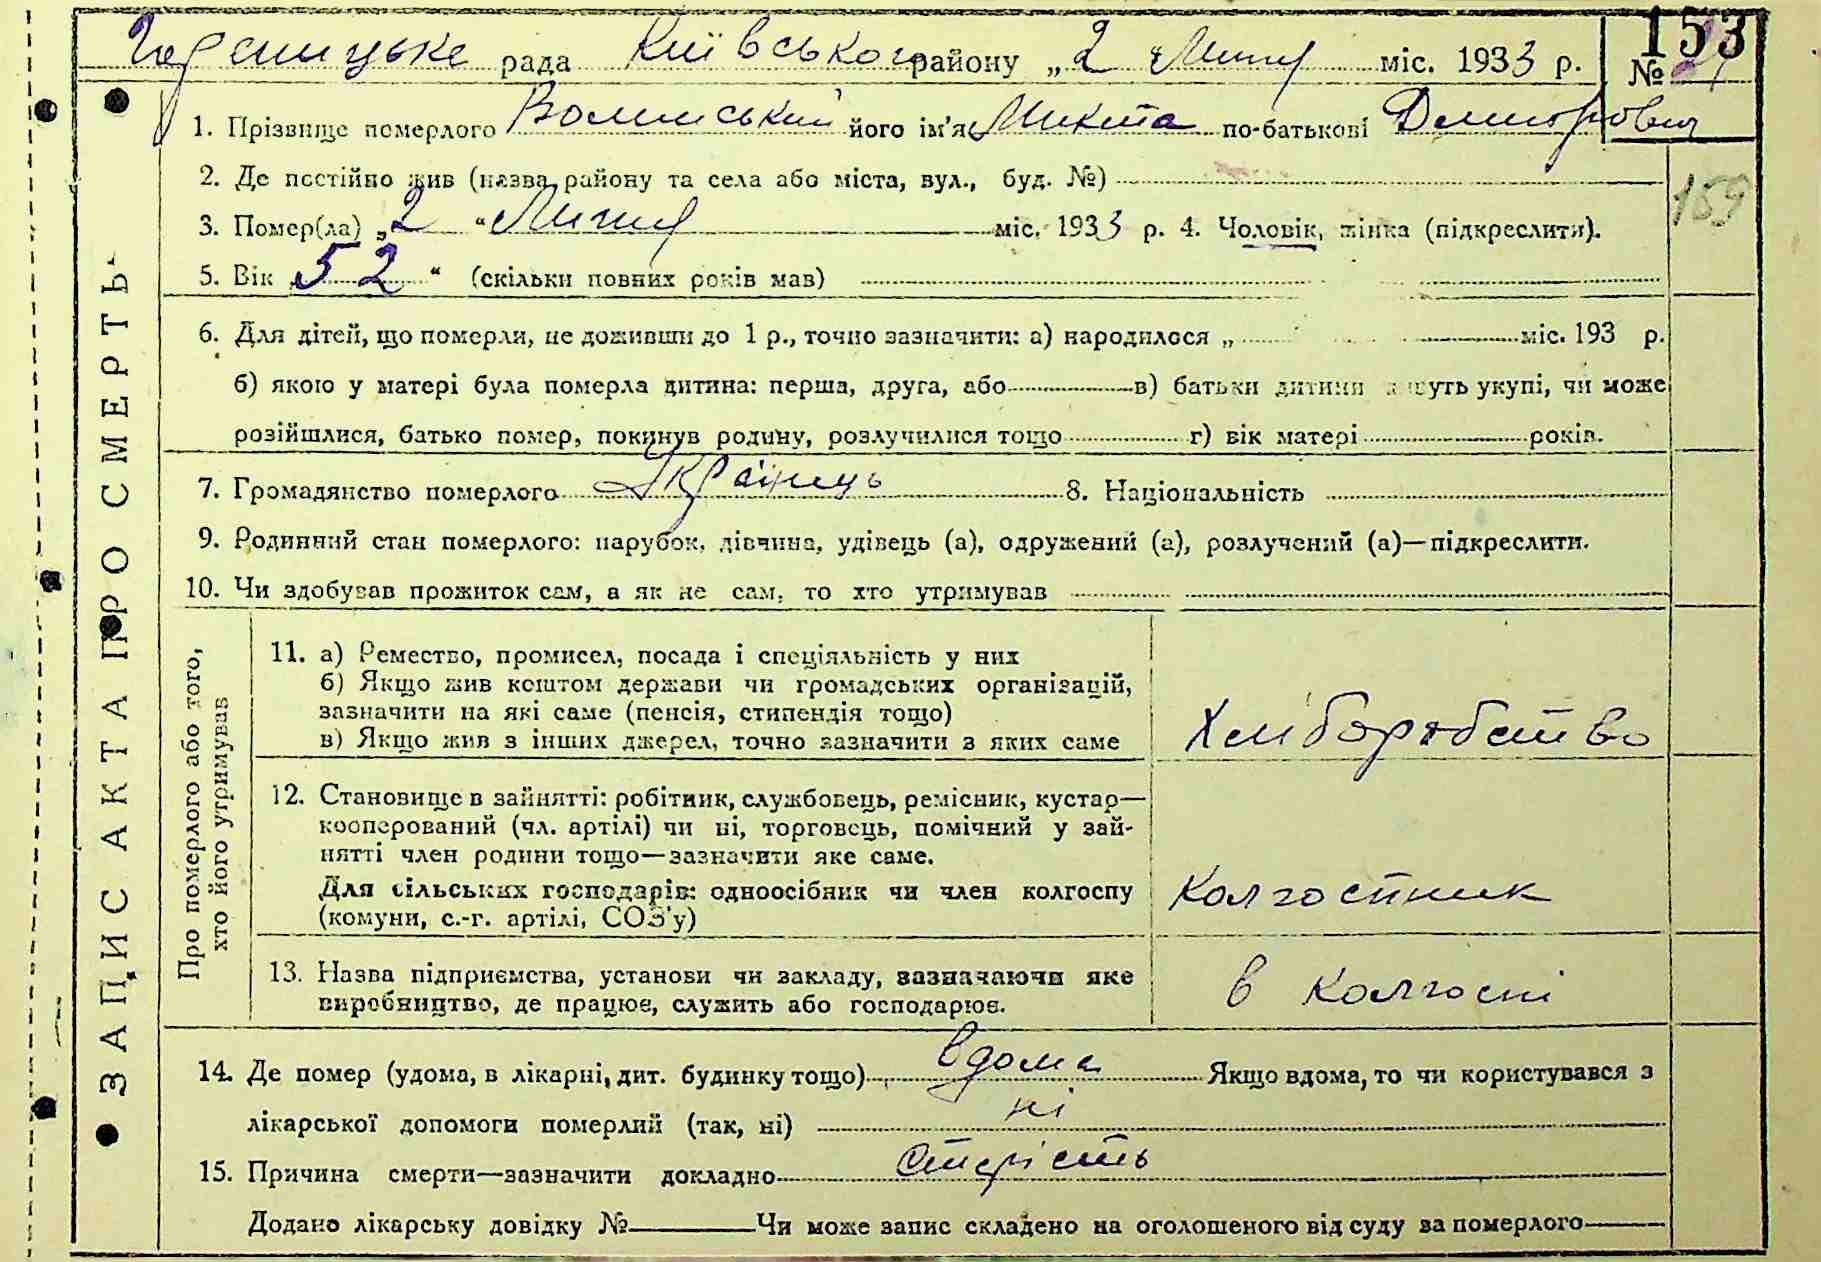 153
Гореницьке рада Київського району „2 Липня міс. 1933 р. №
1. Прізвище померлого Волинський його ім'я Микита по-батькові Дмитрович
2. Де постійно жив (назва району та села або міста, вул., буд. №)
159
3. Помер(ла) „2 “ Липня міс. 1933 р. 4. Чоловік, жінка (підкреслити).
5. Вік 52 “ (скільки повних років мав)
6. Для дітей, що померли, не доживши до 1 р., точно зазначити: а) народилося „ міс. 193 р.
б) якою у матері була померла дитина: перша, друга, або в) батьки дитини живуть укупі, чи може
розійшлися, батько помер, покинув родину, розлучилися тощо г) вік матері років.
7. Громадянство померлого Українець 8. Національність
9. Родинний стан померлого: парубок, дівчина, удівець (а), одружений (а), розлучений (а)—підкреслити.
10. Чи здобував прожиток сам, а як не сам, то хто утримував
Про померлого або того,
хто його утримував
11. а) Ремество, промисел, посада і спеціяльність у них
б) Якщо жив коштом держави чи громадських організацій,
зазначити на які саме (пенсія, стипендія тощо)
в) Якщо жив з інших джерел, точно зазначити з яких саме
Хліборобство
12. Становище в зайнятті: робітник, службовець, ремісник, кустар—
кооперований (чл. артілі) чи ні, торговець, помічний у зай-
нятті член родини тощо—зазначити яке саме.
Для сільських господарів: одноосібник чи член колгоспу
(комуни, с.-г. артілі, СОЗ'у)
Колгостник
13. Назва підприємства, установи чи закладу, зазначаючи яке
виробництво, де працює, служить або господарює.
в колгоспі
14. Де помер (удома, в лікарні, дит. будинку тощо) вдома Якщо вдома, то чи користувався з
лікарської допомоги померлий (так, ні) ні
15. Причина смерти—зазначити докладно старість
Додано лікарську довідку № Чи може запис складено на оголошеного від суду за померлого
ЗАПИС АКТА ПРО СМЕРТЬ